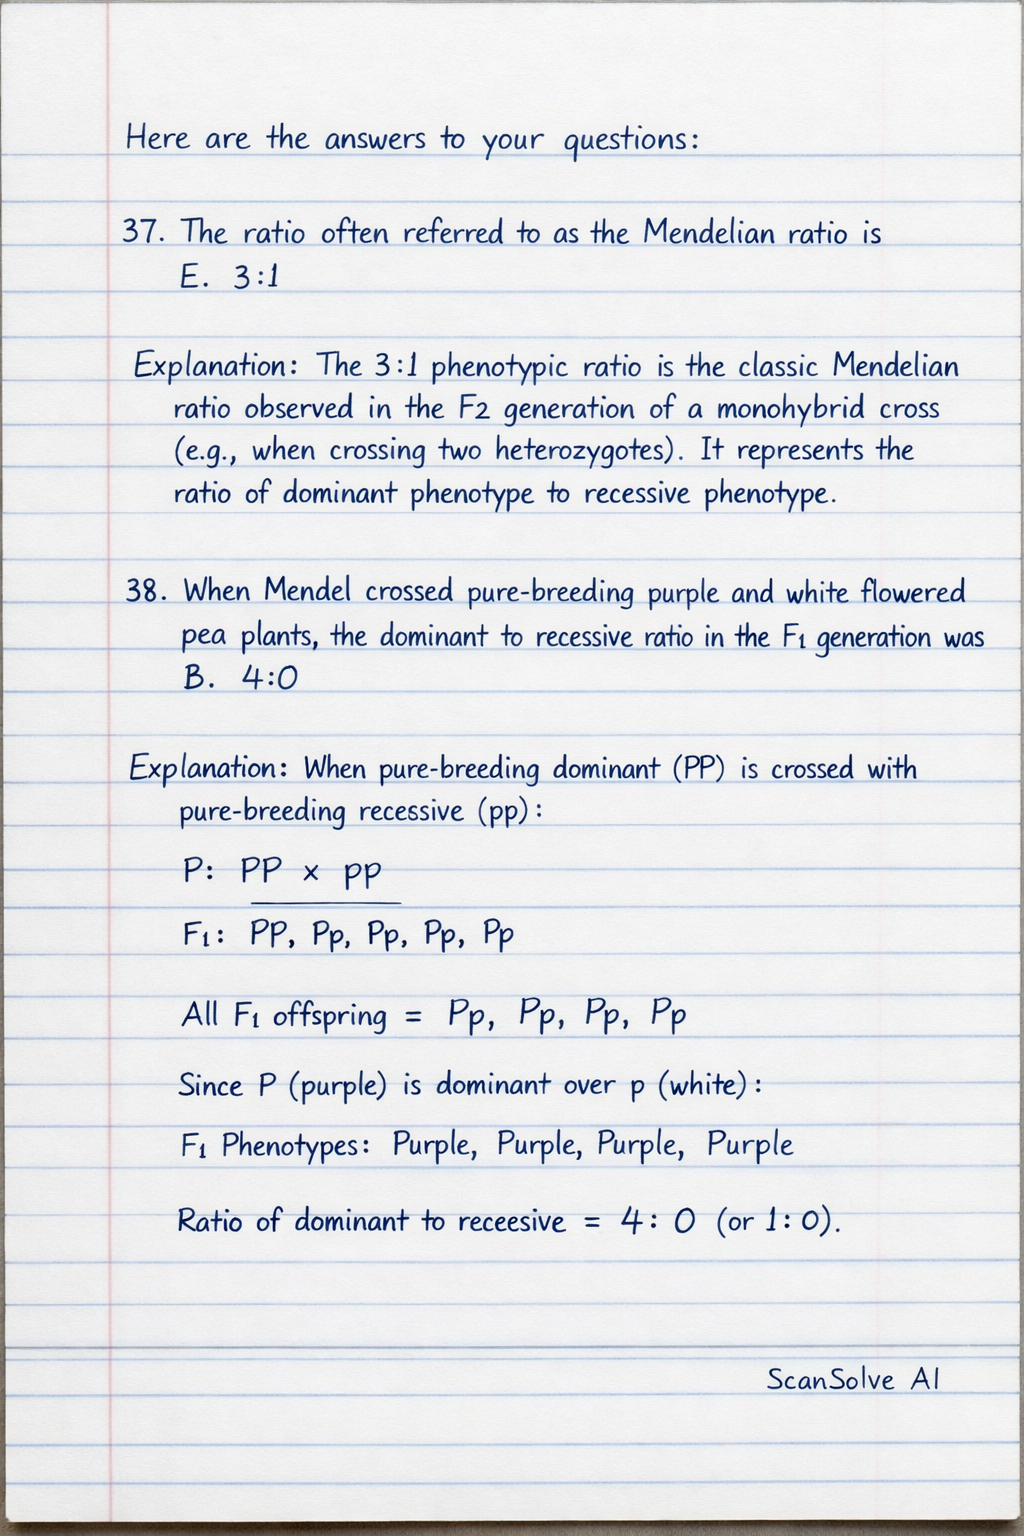 Here are the answers to your questions:
37. The ratio often referred to as the Mendelian ratio is
E. 3:1
Explanation: The 3:1 phenotypic ratio is the classic Mendelian
ratio observed in the F2 generation of a monohybrid cross
(e.g., when crossing two heterozygotes). It represents the
ratio of dominant phenotype to recessive phenotype.
38. When Mendel crossed pure-breeding purple and white flowered
pea plants, the dominant to recessive ratio in the F₁ generation was
B. 4:0
Explanation: When pure-breeding dominant (PP) is crossed with
pure-breeding recessive (pp):
P: PP × pp
F₁: PP, Pp, Pp, Pp, Pp
All F₁ offspring = Pp, Pp, Pp, Pp
Since P (purple) is dominant over p (white):
F₁ Phenotypes: Purple, Purple, Purple, Purple
Ratio of dominant to receesive = 4: 0 (or 1: 0).
ScanSolve AI